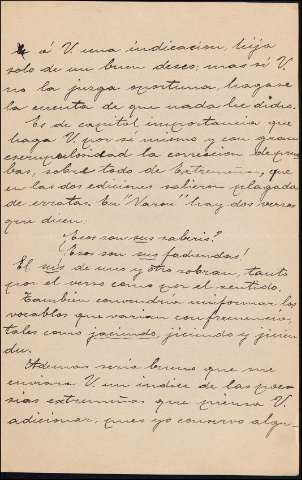 á V. una indicacion, hija
solo de un buen deseo; mas si V.
no la juzga oportuna, hagase
la cuenta de que nada he dicho.
Es de capital importancia que
haga V. por sí mismo y con gran
escrupulosidad la correccion de prue
bas, sobre todo de Extremeñas, que
en las dos ediciones salieron plagadas
de erratas. En "Varon" hay dos versos
que dicen:
¿Esos son sus saberis?
¡Esos son sus fachendas!
El sus de uno y otro sobran, tanto
por el verso como por el sentido.
Tambien convendria uniformar los
vocablos que varian con frecuencia;
tales como jaciendo, jiciendo y jicien
du.
Ademas seria bueno que me
enviara V. un indice de las poe
sias extremeñas que piensa V.
adicionar, pues yo conservo algu-